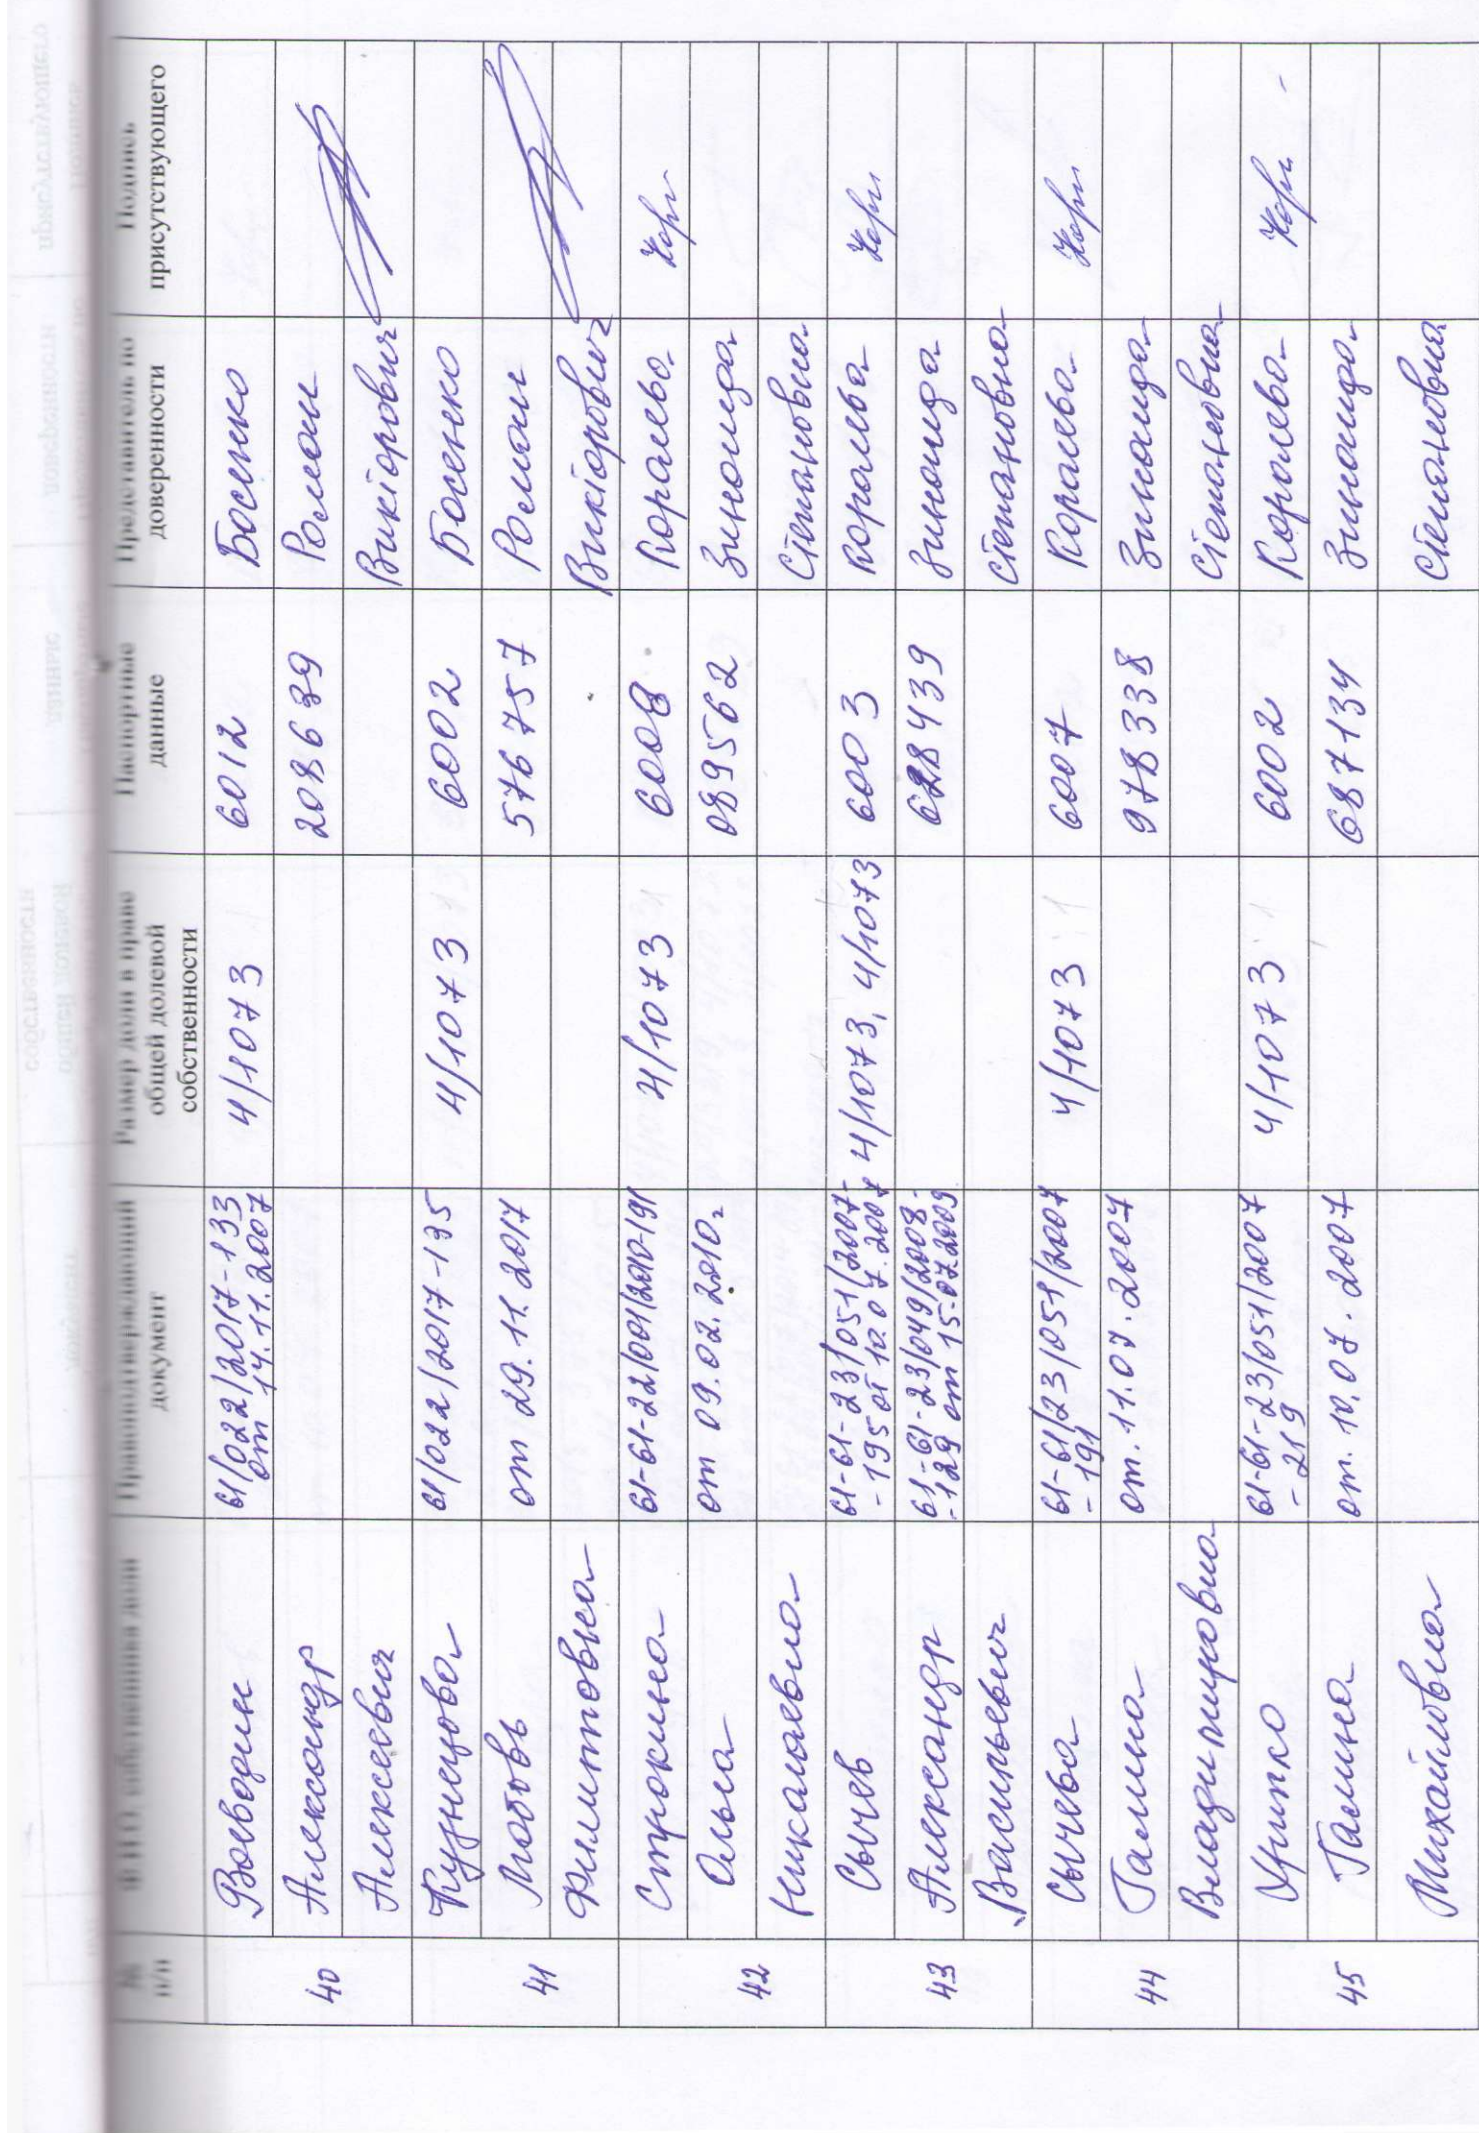 № п/п
Ф.И.О. собственника доли
Правоподтверждающий документ
Размер доли в праве общей долевой собственности
Паспортные данные
Представитель по доверенности
Подпись присутствующего
40
Воеводин
Александр
Алексеевич
61/022/2017-133
от 14.11.2007
4/1073
6012
208639
Босенко
Роман
Викторович
41
Кузнецова
Любовь
Филиповна
61/022/2017-135
от 29.11.2017
4/1073
6002
576757
Босенко
Роман
Викторович
42
Строкина
Ольга
Николаевна
61-61-22/001/2010-191
от 09.02.2010г
4/1073
6008
089562
Королева
Зинаида
Степановна
43
Сычев
Александр
Васильевич
61-61-23/051/2007-
-195 от 10.07.2007
61-61-23/049/2008-
-129 от 15.07.2009
4/1073, 4/1073
6003
628439
Королева
Зинаида
Степановна
44
Сычева
Галина
Владимировна
61-61/23/051/2007
-191
от.11.07.2007
4/1073
6007
978338
Королева
Зинаида
Степановна
45
Урипко
Галина
Михайловна
61-61-23/051/2007
-219
от.10.07.2007
4/1073
6002
687134
Королева
Зинаида
Степановна